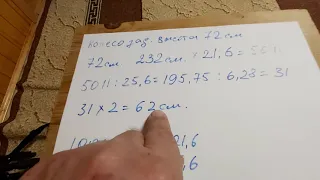 колесо зад. высота 72 см
72см 232см. × 21,6 = 5011
5011 : 25,6 = 195,75 : 6,28 = 31
31 × 2 = 62 см.
21,6
6